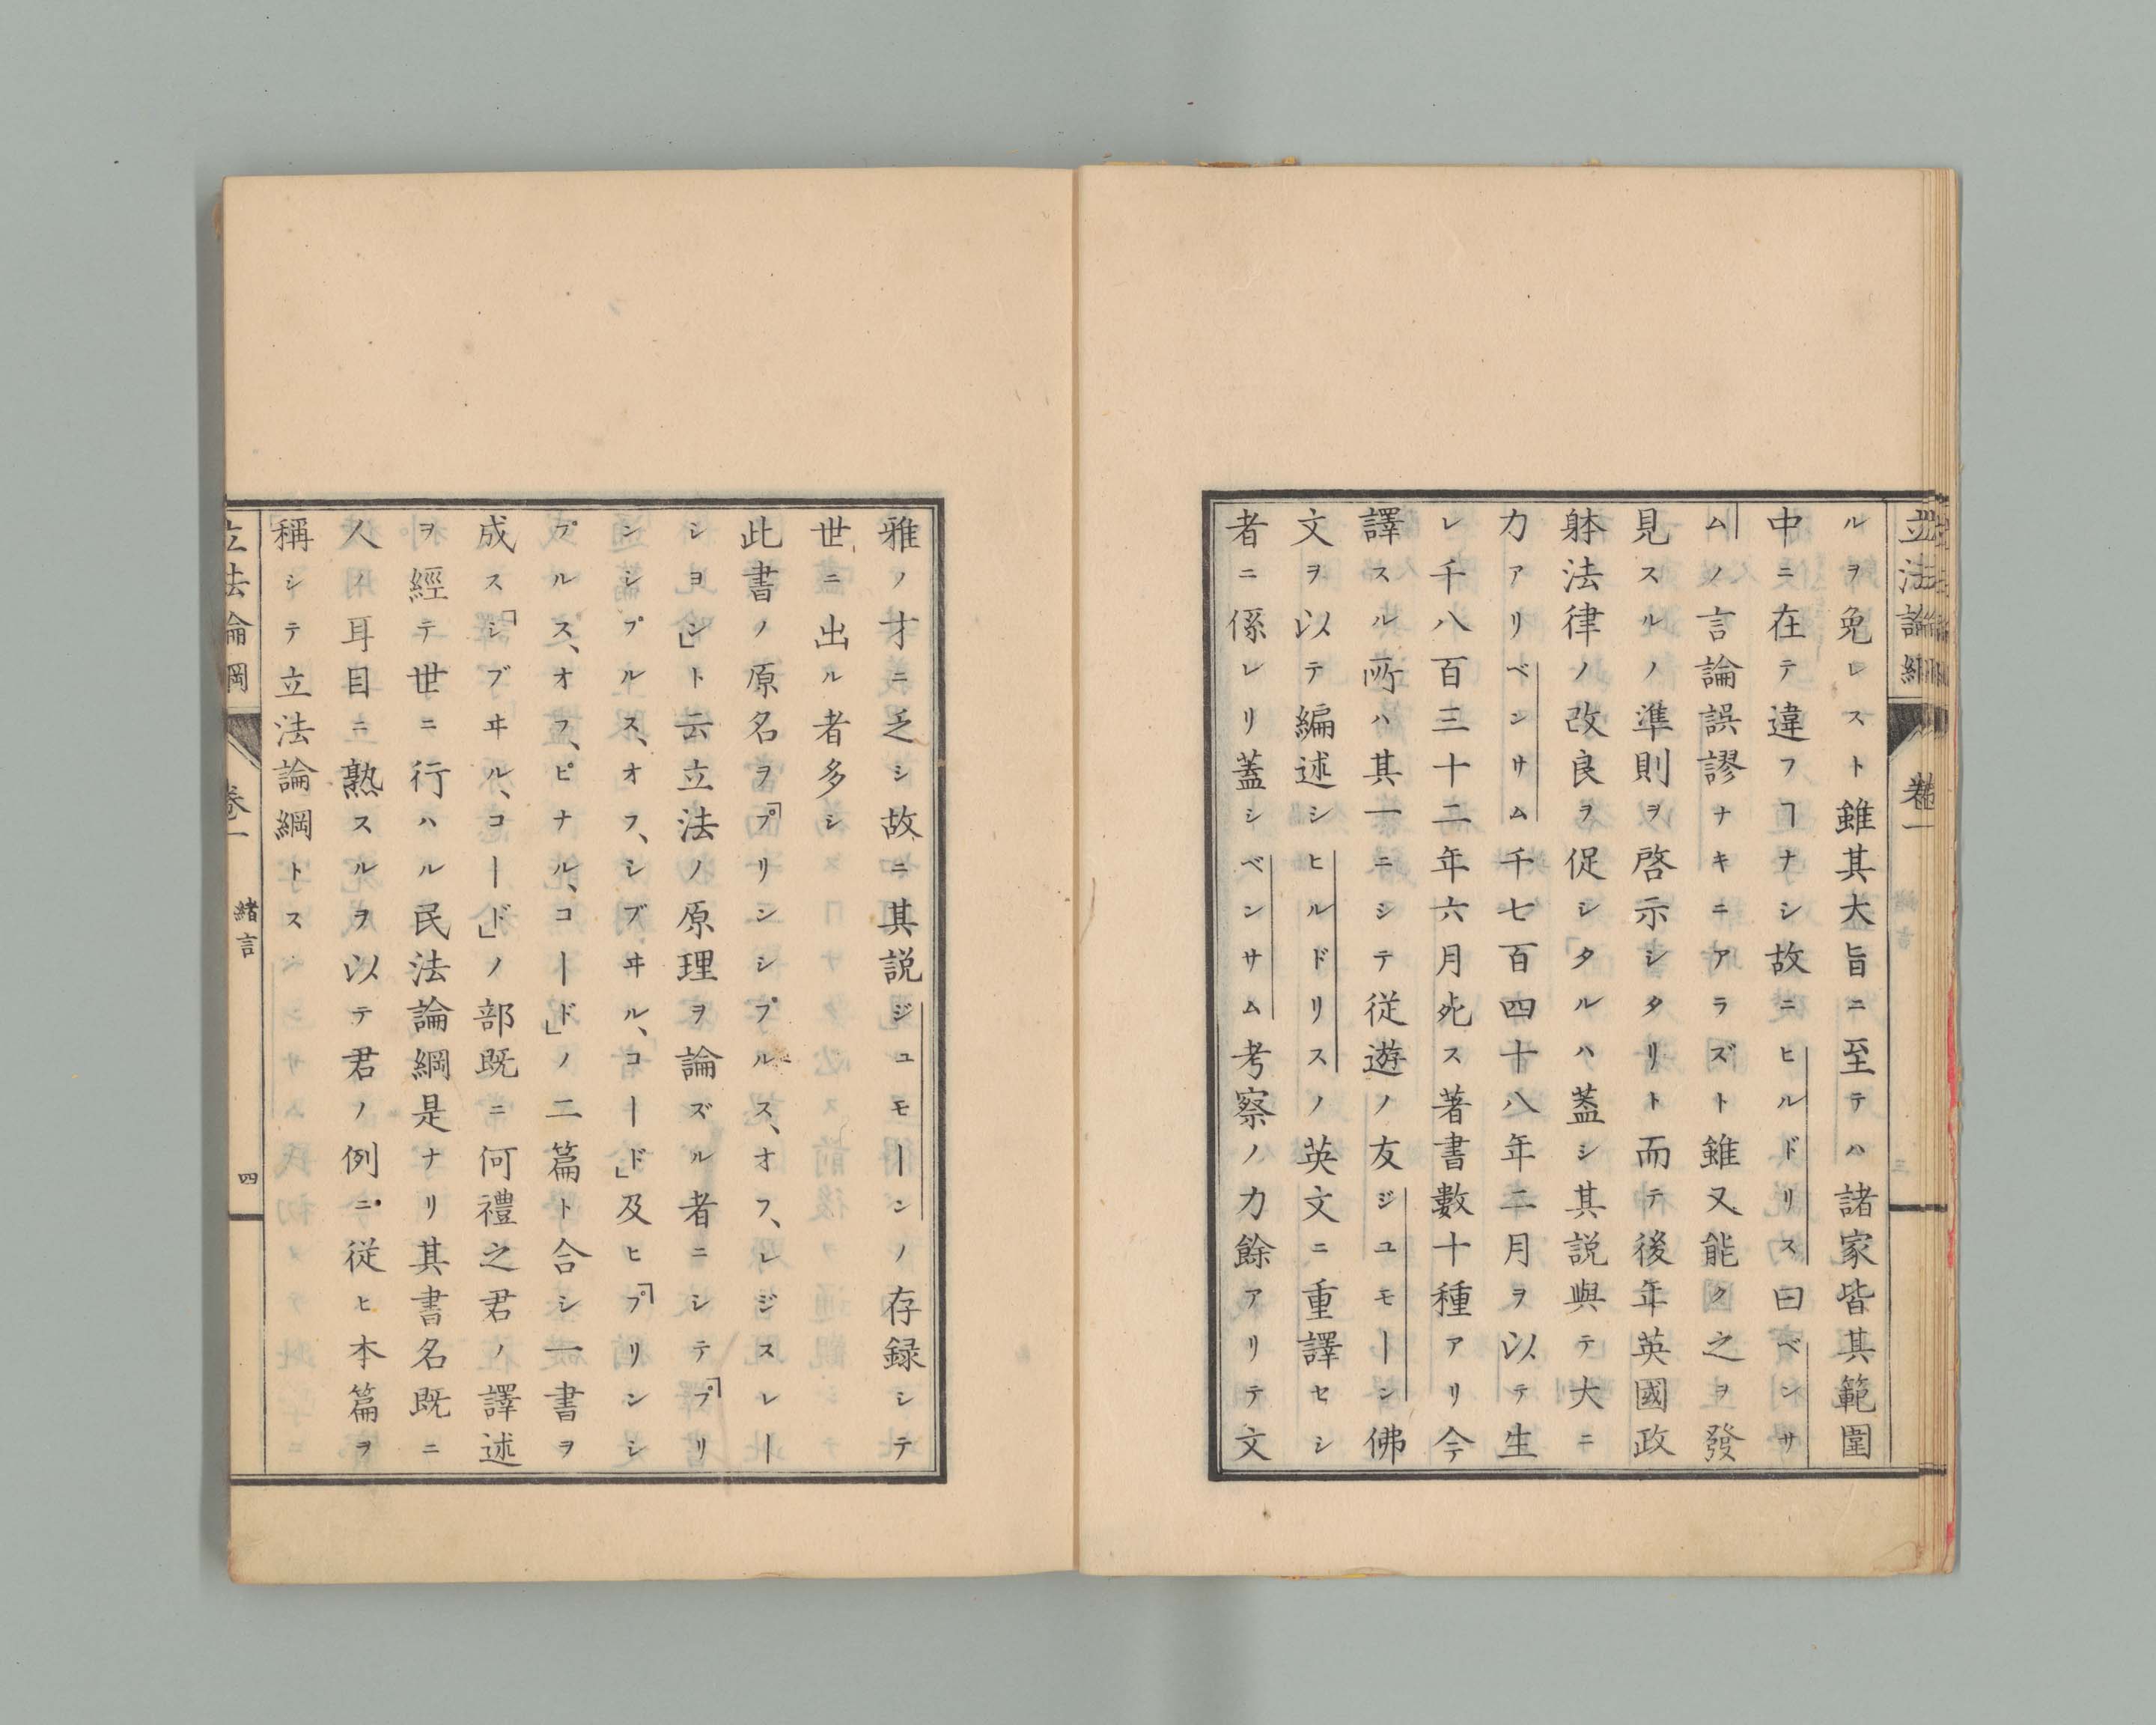 立法論綱 卷一
ルヲ免レスト雖其大旨ニ至テハ諸家皆其範圍
中ニ在テ違フヿナシ故ニヒルドリス曰ベンサ
ムノ言論誤謬ナキニアラズト雖又能ク之ヲ發
見スルノ準則ヲ啓示シタリト而テ後年英國政
躰法律ノ改良ヲ促シタルハ蓋シ其説與テ大ニ
力アリベンサム千七百四十八年二月ヲ以テ生
レ千八百三十二年六月死ス著書數十種アリ今
譯スル所ハ其一ニシテ従遊ノ友ジユモーン佛
文ヲ以テ編述シヒルドリスノ英文ニ重譯セシ
者ニ係レリ蓋シベンサム考察ノ力餘アリテ文
雅ノ才ニ乏シ故ニ其説ジユモーンノ存録シテ
世ニ出ル者多シ
此書ノ原名ヲ「プリンシプルス、オフ、レジスレー
シヨン」ト云立法ノ原理ヲ論ズル者ニシテ「プリ
ンシプルス、オフ、シブヰル、コード」及ヒ「プリンシ
プルス、オフ、ピナル、コード」ノ二篇ト合シ一書ヲ
成ス「シブヰル、コード」ノ部既ニ何禮之君ノ譯述
ヲ經テ世ニ行ハル民法論綱是ナリ其書名既ニ
人ノ耳目ニ熟スルヲ以テ君ノ例ニ従ヒ本篇ヲ
稱シテ立法論綱トス
立法論綱 卷一 緒言 四